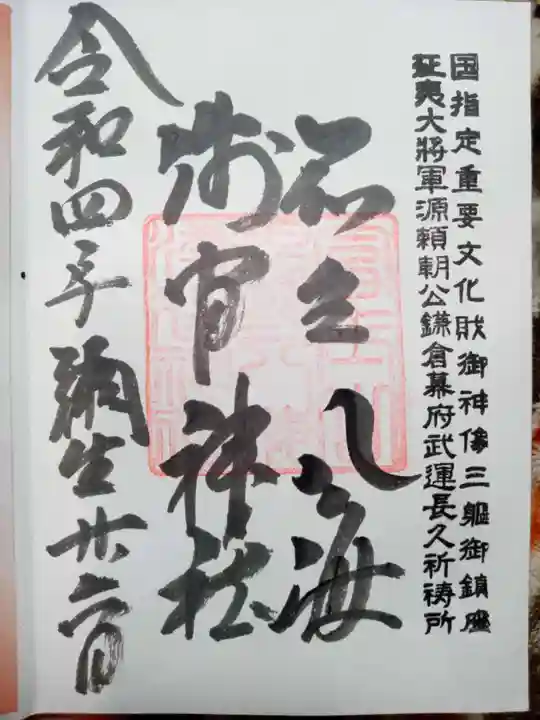 国指定重要文化財御神像三軀御鎮座
征夷大将軍源頼朝公鎌倉幕府武運長久祈祷所
忍之八海
浅間神社
令和四年弥生廿六日